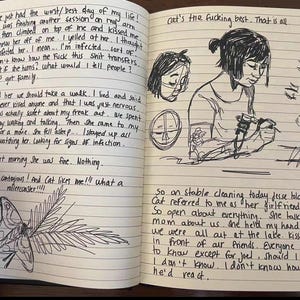 just had the worst/best day of my life!
was finishing another session on my arm
then climbed on top of me and kissed me
her off of me. I yelled at her. I thought
me. I mean... I'm infected, sort of
don't know how the fuck this shit transfers
the turns? What would I tell people?
family.
her we should take a walk. I lied and said
never kissed anyone and that I was just nervous
actually sweet about my freak out. We spent
walking and talking. Then she came to my
for a movie. She fell asleep... I stayed up all
watching her, looking for signs of infection.
Next morning she was fine. Nothing.
contagious! And Cat likes me!!! What a
Cat's the fucking best. That is all.
So on stable cleaning today Jesse
Cat referred to me as "her girlfriend
So open about everything. She talked
mom about us and held my hand
we were all out at the lake kiss
in front of our friends. Everyone
to know except for Joel. Should I
I don't know. I don't know how
he'd react.